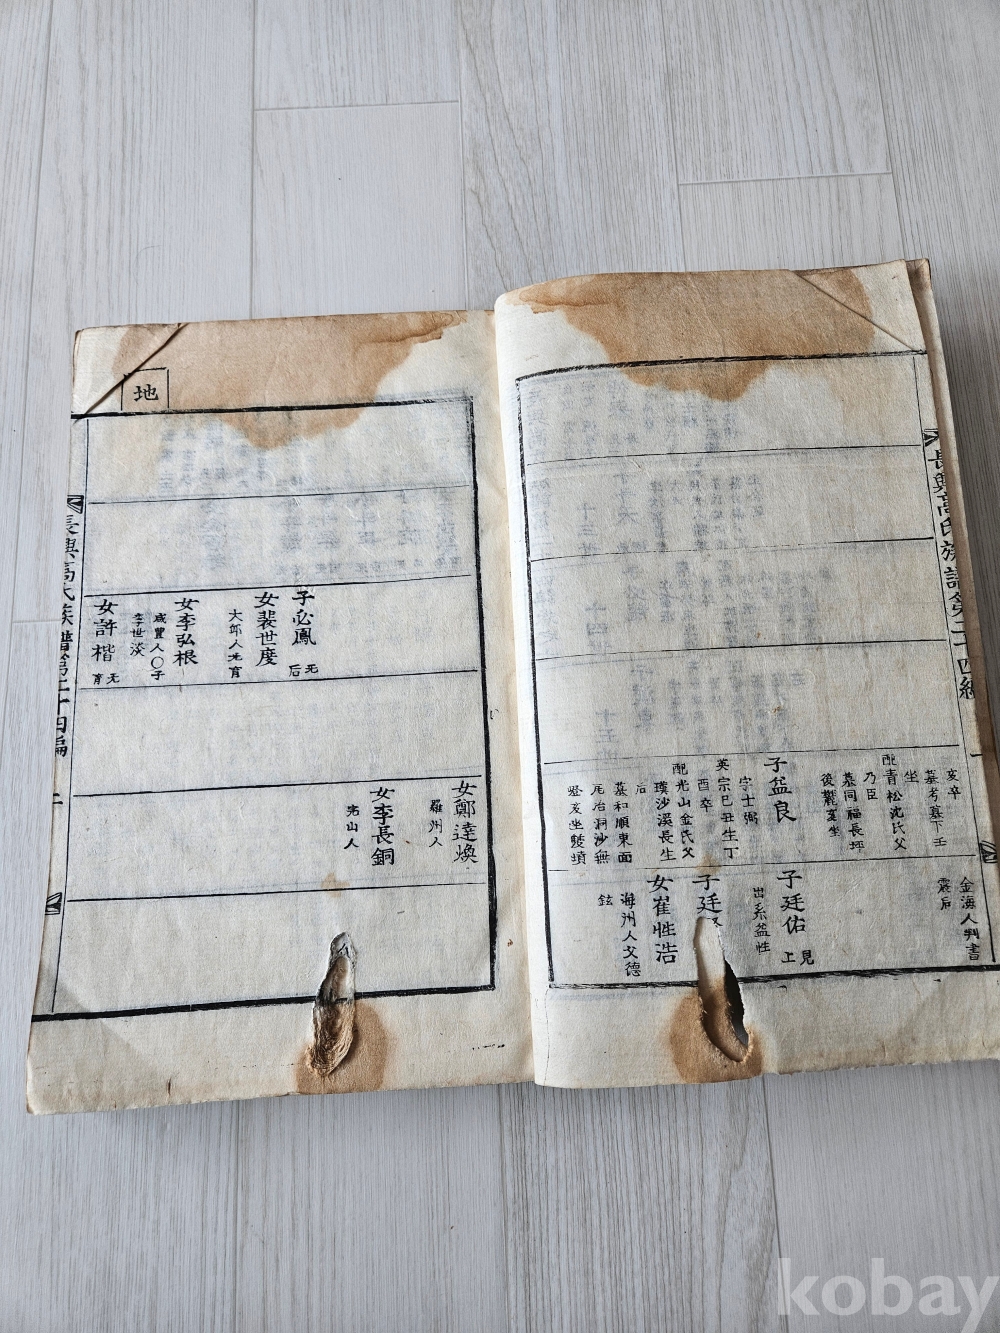 長興高氏族譜第二十四編
亥卒
墓考墓下壬
坐
配青松沈氏父
乃臣
墓同福長坪
後麓亥坐
子益良
字士弼
英宗己丑生丁
酉卒
配光山金氏父
璞沙溪長生
后
墓和順東面
尼冶洞沙無
登亥坐雙墳
金海人判書
震后
子廷佑
見上
出系益性
子廷
女崔性浩
海州人父德
鉉
子必鳳
无后
女裴世度
大邱人无育
女李弘根
咸豐人〇子
李世淡
女許楷
无育
女鄭達煥
羅州人
女李長銅
光山人
地
長興高氏族譜第二十四編
二
kobay